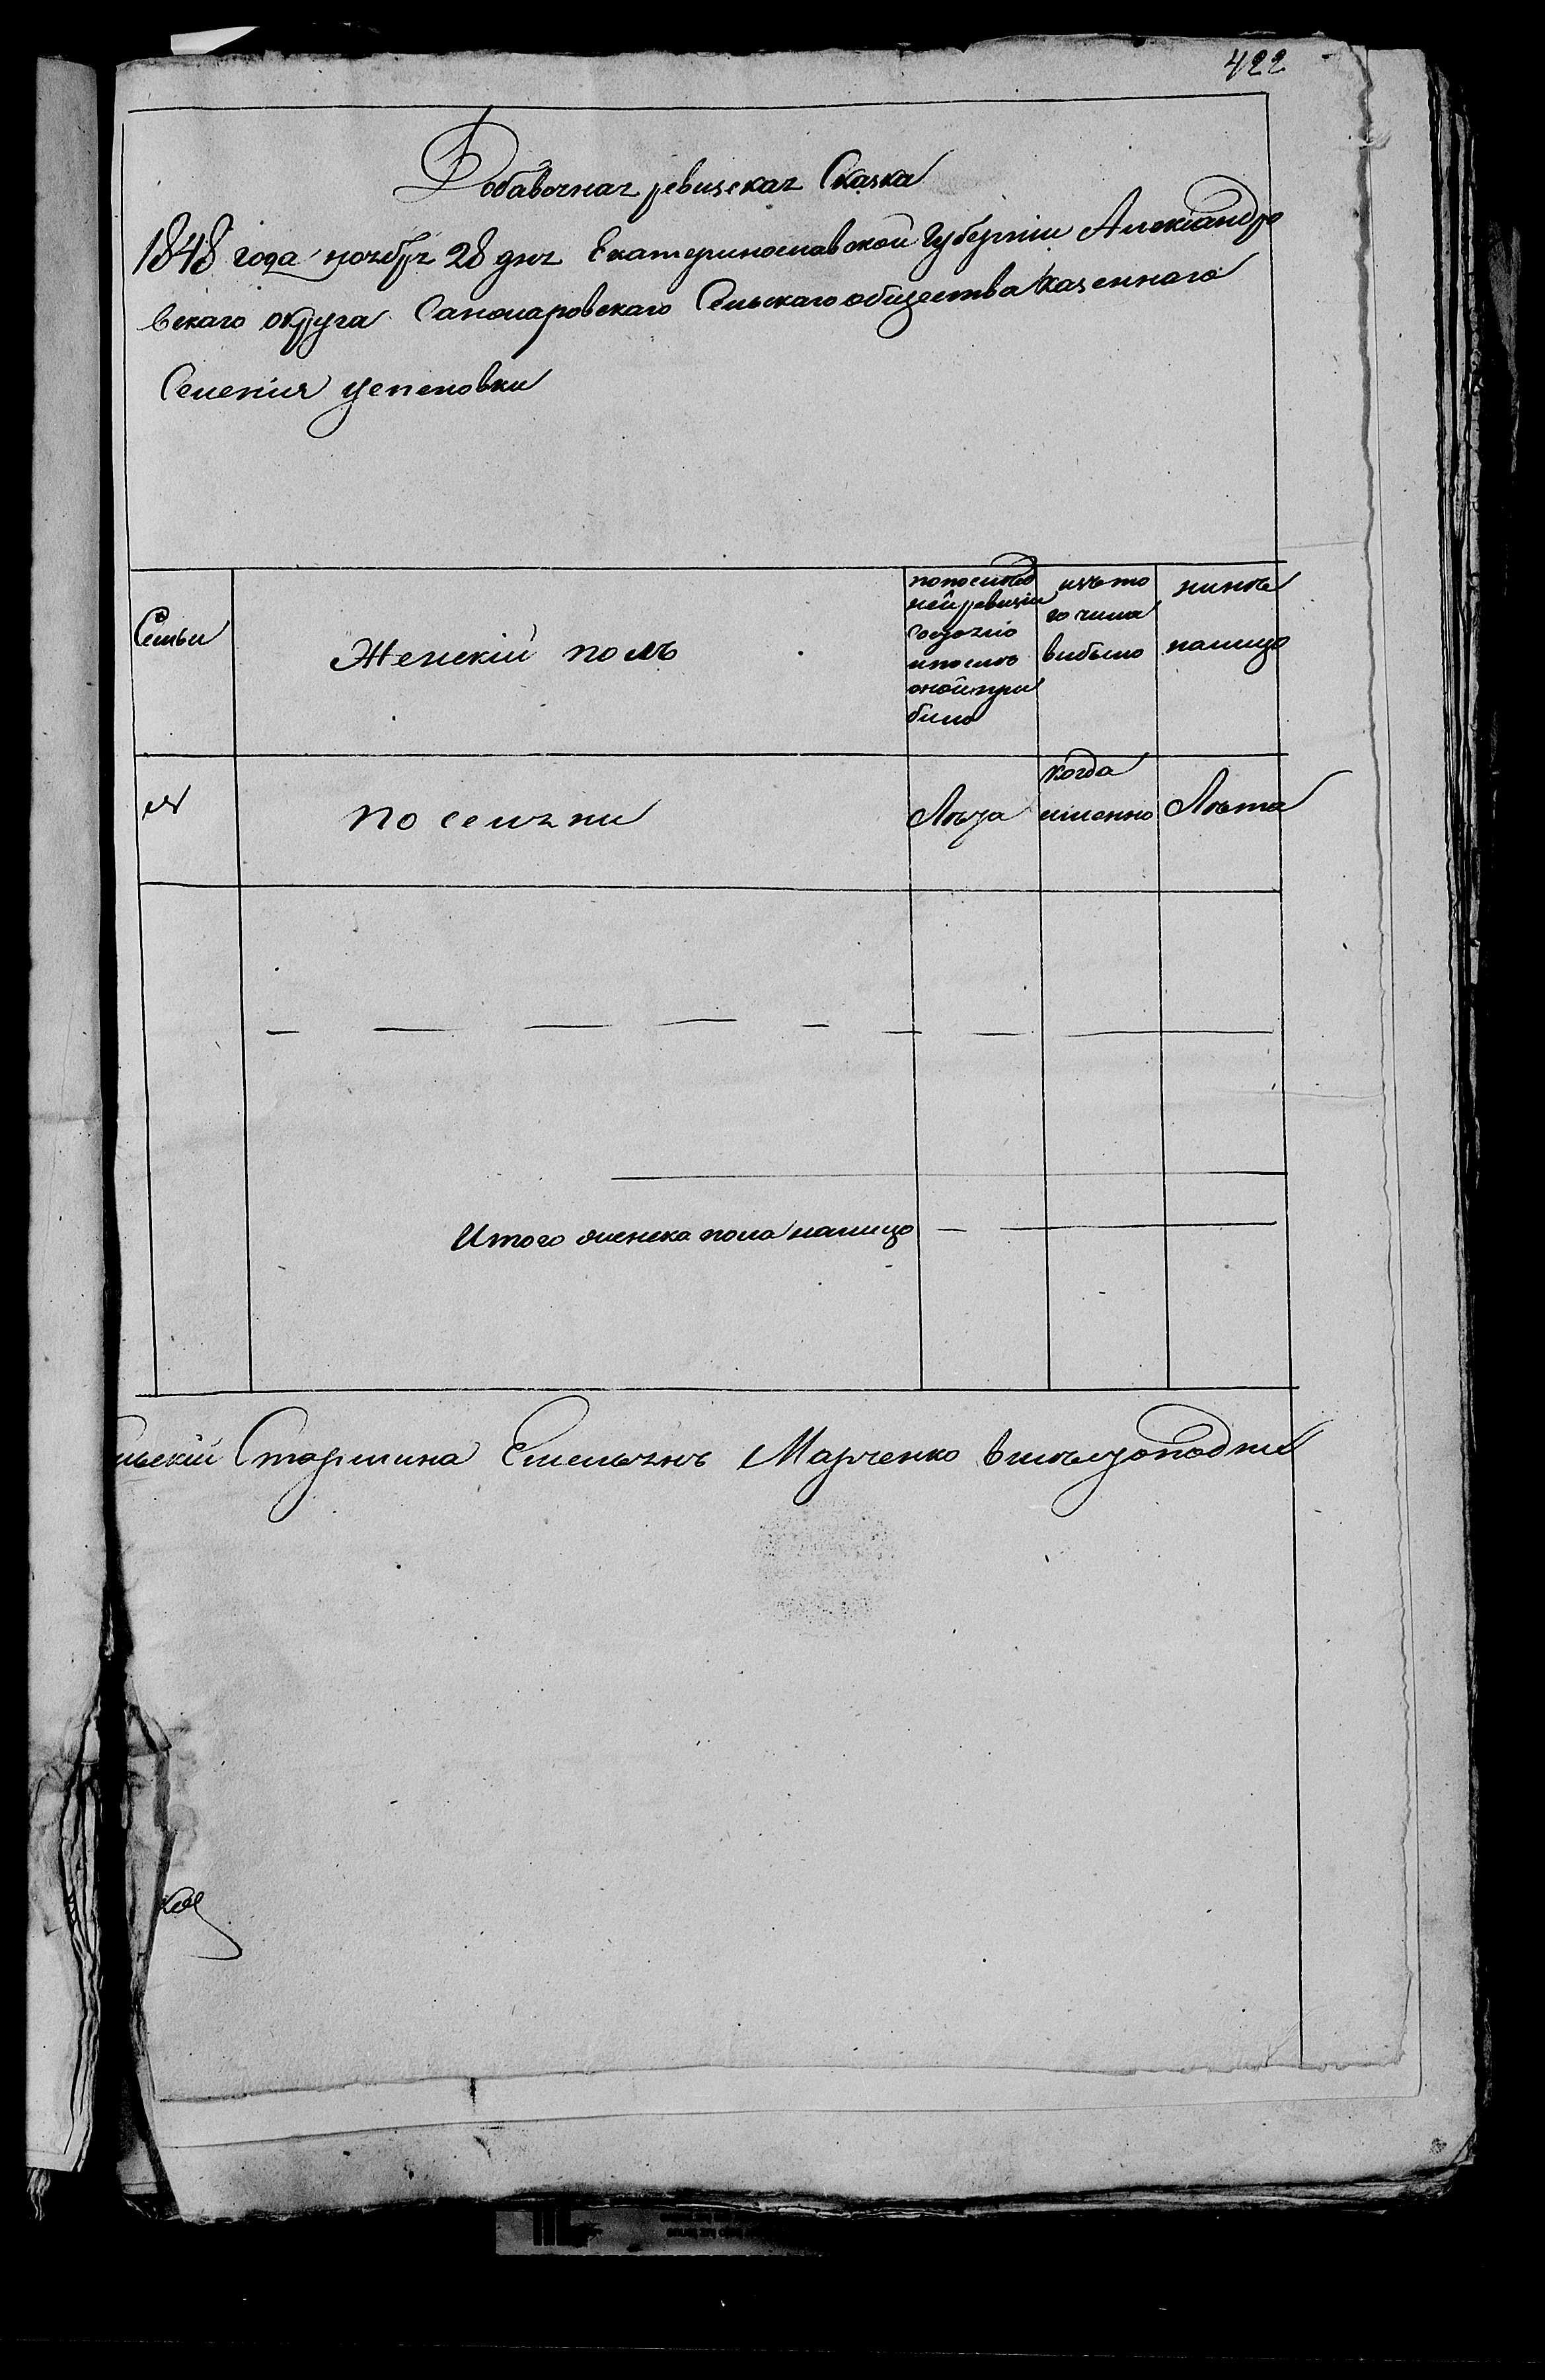 422
Добавочная ревизская Сказка
1848 года ноября 28 дня Екатеринославской Губернии Александро
вскаго округа Санжаровскаго Сельскаго общества казеннаго
Селения
Семьи
Женский полъ
попослѣд
ней ревизии
состояло
и послѣ
оной при
было
изъ то
го числа
выбыло
нинѣ
налицо
№
поселяни
Лѣта
когда
именно
Лѣта
Итого женска пола налицо
Старшина Емельянъ Марченко